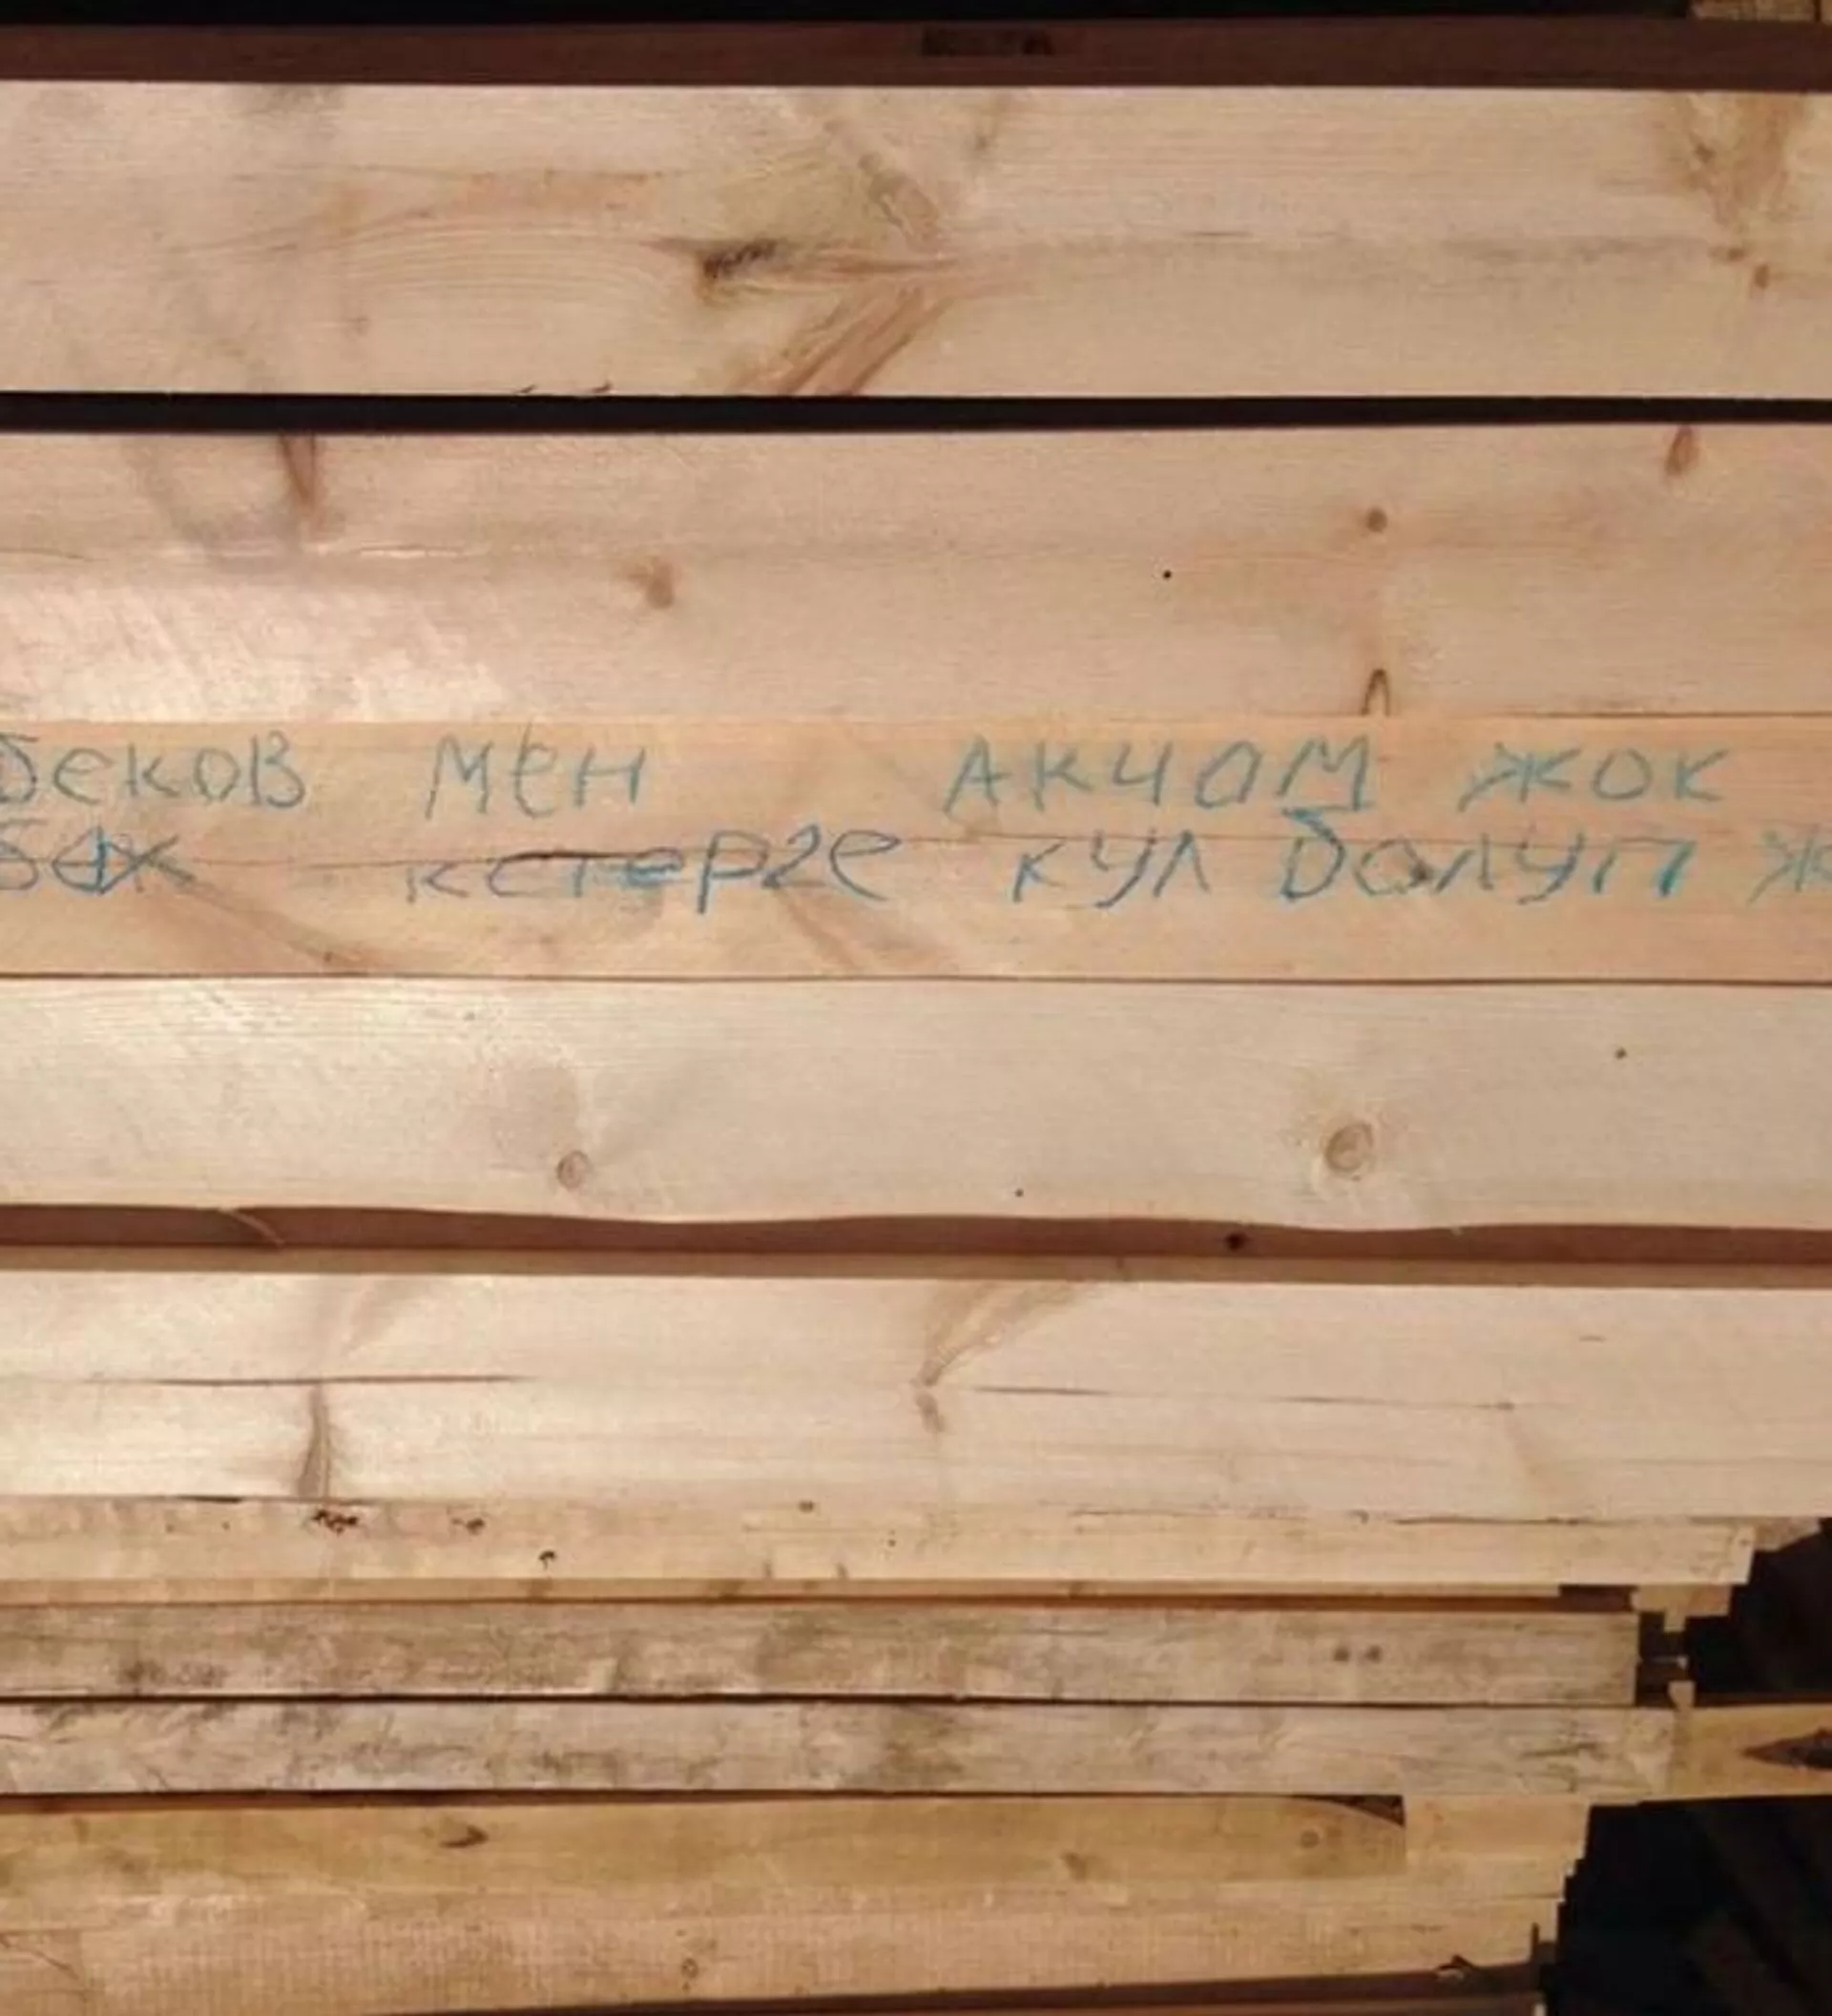 беков мен акчам жок
кетерге кул болуп ж